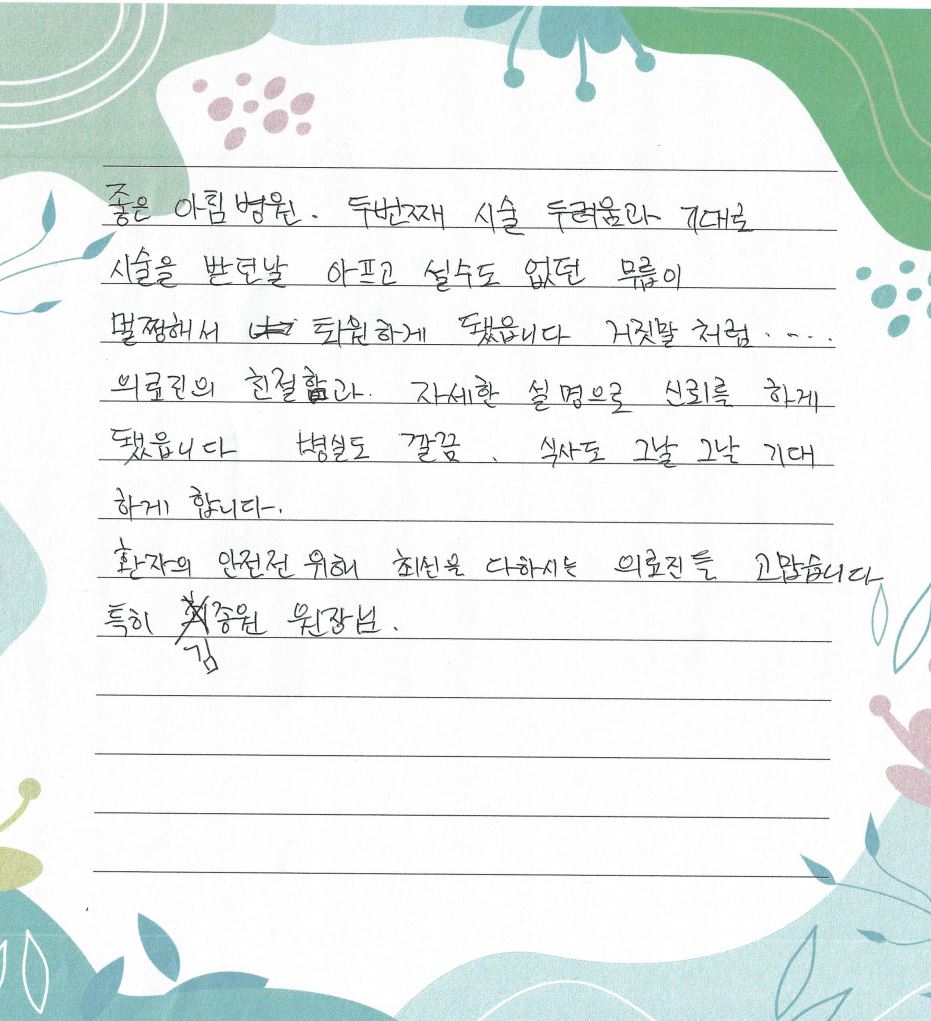 좋은 아침병원. 두번째 시술 두려움과 기대로
시술을 받던날 아프고 설수도 없던 무릎이
멀쩡해서 퇴원하게 됐읍니다 거짓말 처럼....
의료진의 친절함과. 자세한 설명으로 신뢰를 하게
됐읍니다 병실도 깔끔. 식사도 그날 그날 기대
하게 합니다.
환자의 안전전 위해 최선을 다하시는 의료진들 고맙습니다
특히 김종원 원장님.